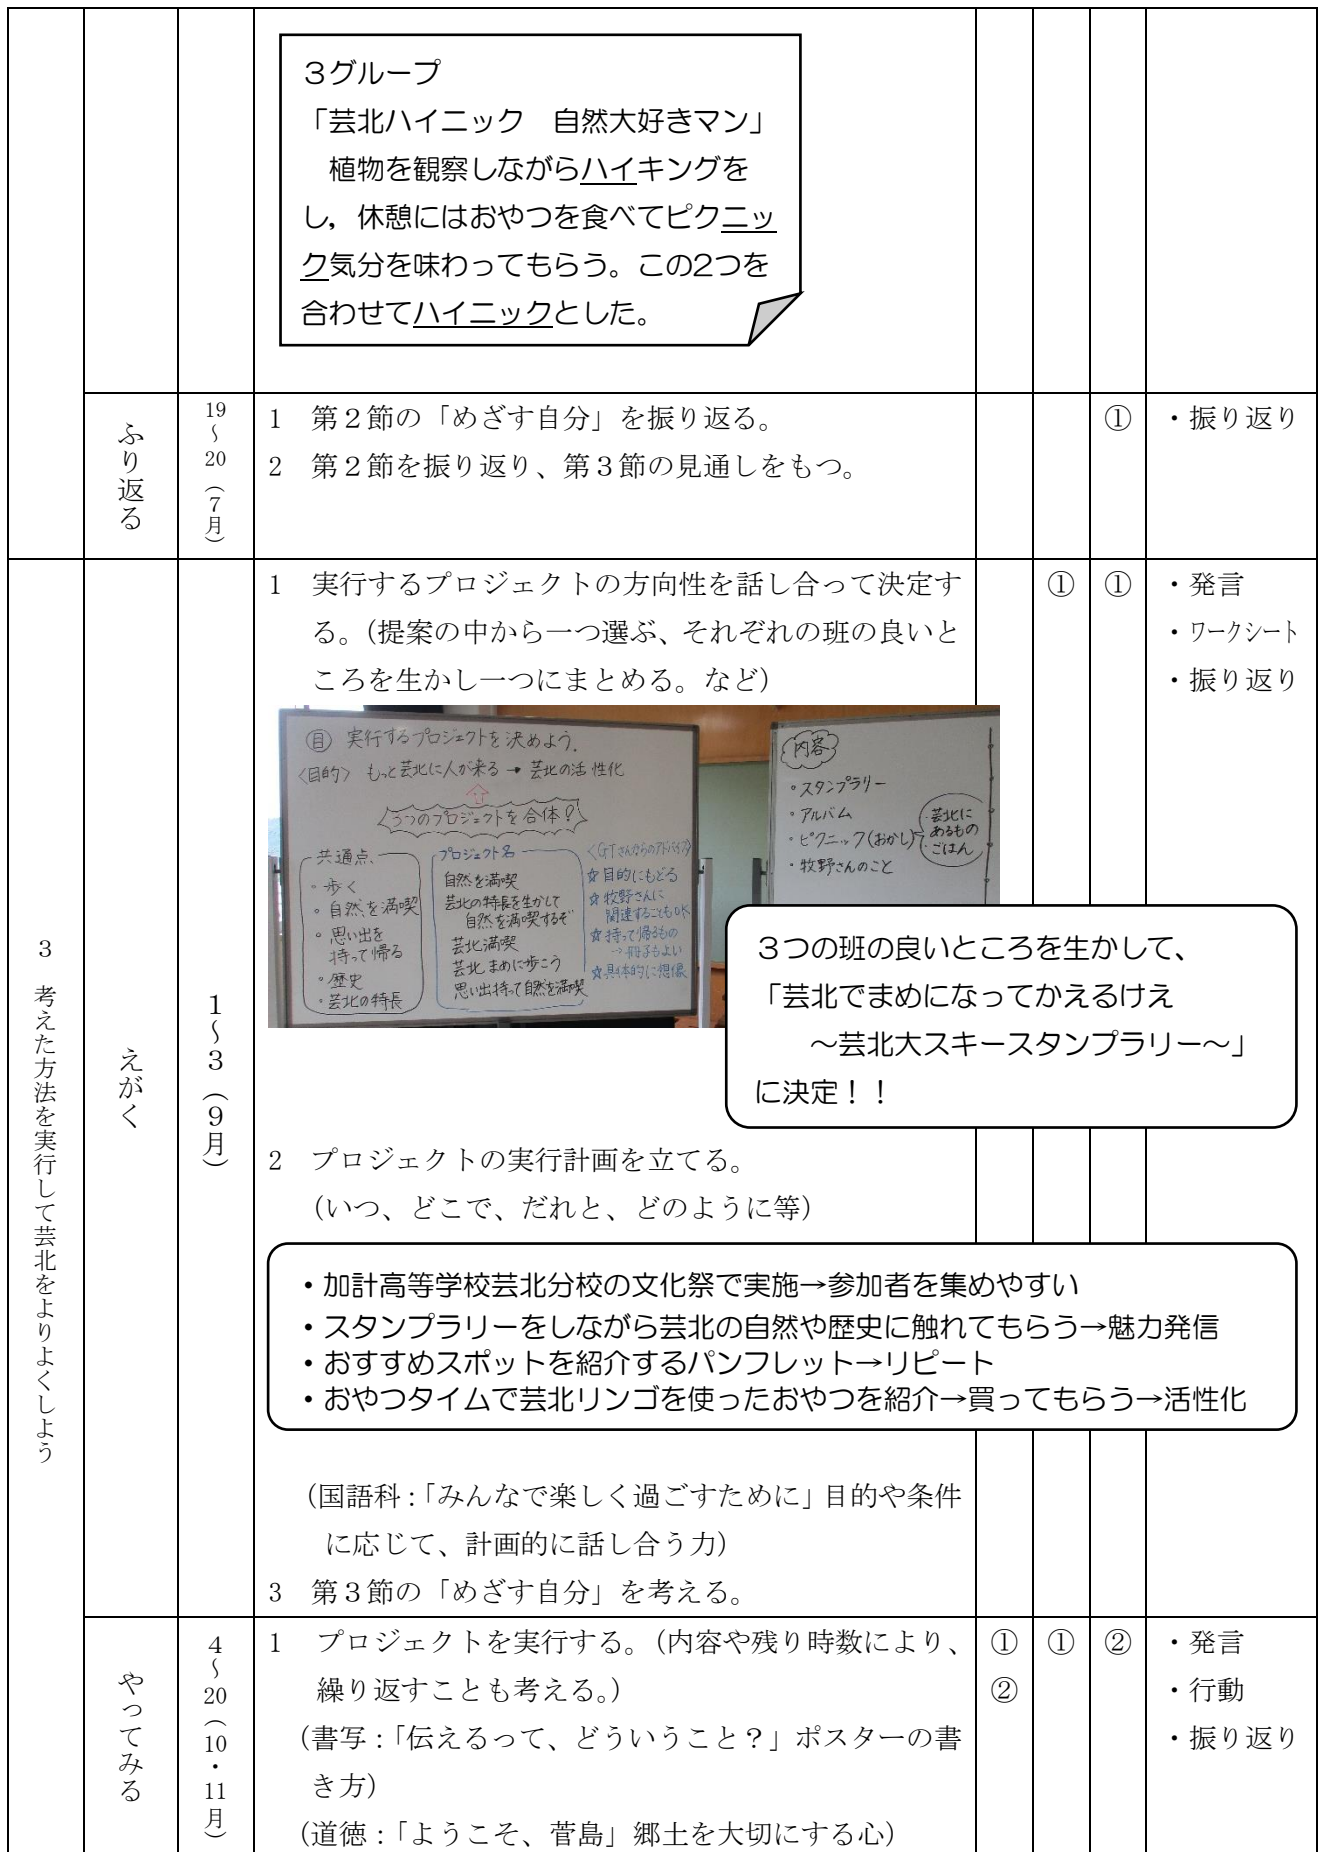 3グループ
「芸北ハイニック　自然大好きマン」
植物を観察しながらハイキングを
し，休憩にはおやつを食べてピクニッ
ク気分を味わってもらう。この2つを
合わせてハイニックとした。
ふり返る
19～20（7月）
1　第２節の「めざす自分」を振り返る。
2　第２節を振り返り、第３節の見通しをもつ。
①
・振り返り
3　考えた方法を実行して芸北をよりよくしよう
えがく
1～3（9月）
1　実行するプロジェクトの方向性を話し合って決定す
る。（提案の中から一つ選ぶ、それぞれの班の良いと
ころを生かし一つにまとめる。など）
①
①
・発言
・ワークシート
・振り返り
目 実行するプロジェクトを決めよう.
〈目的〉 もっと芸北に人が来る → 芸北の活性化
3つのプロジェクトを合体？
共通点
・歩く
・自然を満喫
・思い出を
持って帰る
・歴史
・芸北の特長
プロジェクト名
自然を満喫
芸北の特長を生かして
自然を満喫するぞ
芸北満喫
芸北まめに歩こう
思い出持って自然を満喫
〈GTさんからのアドバイス〉
☆目的にもどる
☆牧野さんに
関連することもOK
☆持って帰るもの
☆具体的に想像
内容
・スタンプラリー
・アルバム
・ピクニック(おかし)
・牧野さんのこと
・芸北に
あるもの
・ごはん
３つの班の良いところを生かして、
「芸北でまめになってかえるけえ
～芸北大スキースタンプラリー～」
に決定！！
2　プロジェクトの実行計画を立てる。
（いつ、どこで、だれと、どのように等）
・加計高等学校芸北分校の文化祭で実施→参加者を集めやすい
・スタンプラリーをしながら芸北の自然や歴史に触れてもらう→魅力発信
・おすすめスポットを紹介するパンフレット→リピート
・おやつタイムで芸北リンゴを使ったおやつを紹介→買ってもらう→活性化
（国語科：「みんなで楽しく過ごすために」目的や条件
に応じて、計画的に話し合う力）
3　第３節の「めざす自分」を考える。
やってみる
4～20（10・11月）
1　プロジェクトを実行する。（内容や残り時数により、
繰り返すことも考える。）
（書写：「伝えるって、どういうこと？」ポスターの書
き方）
（道徳：「ようこそ、菅島」郷土を大切にする心）
①
②
①
②
・発言
・行動
・振り返り